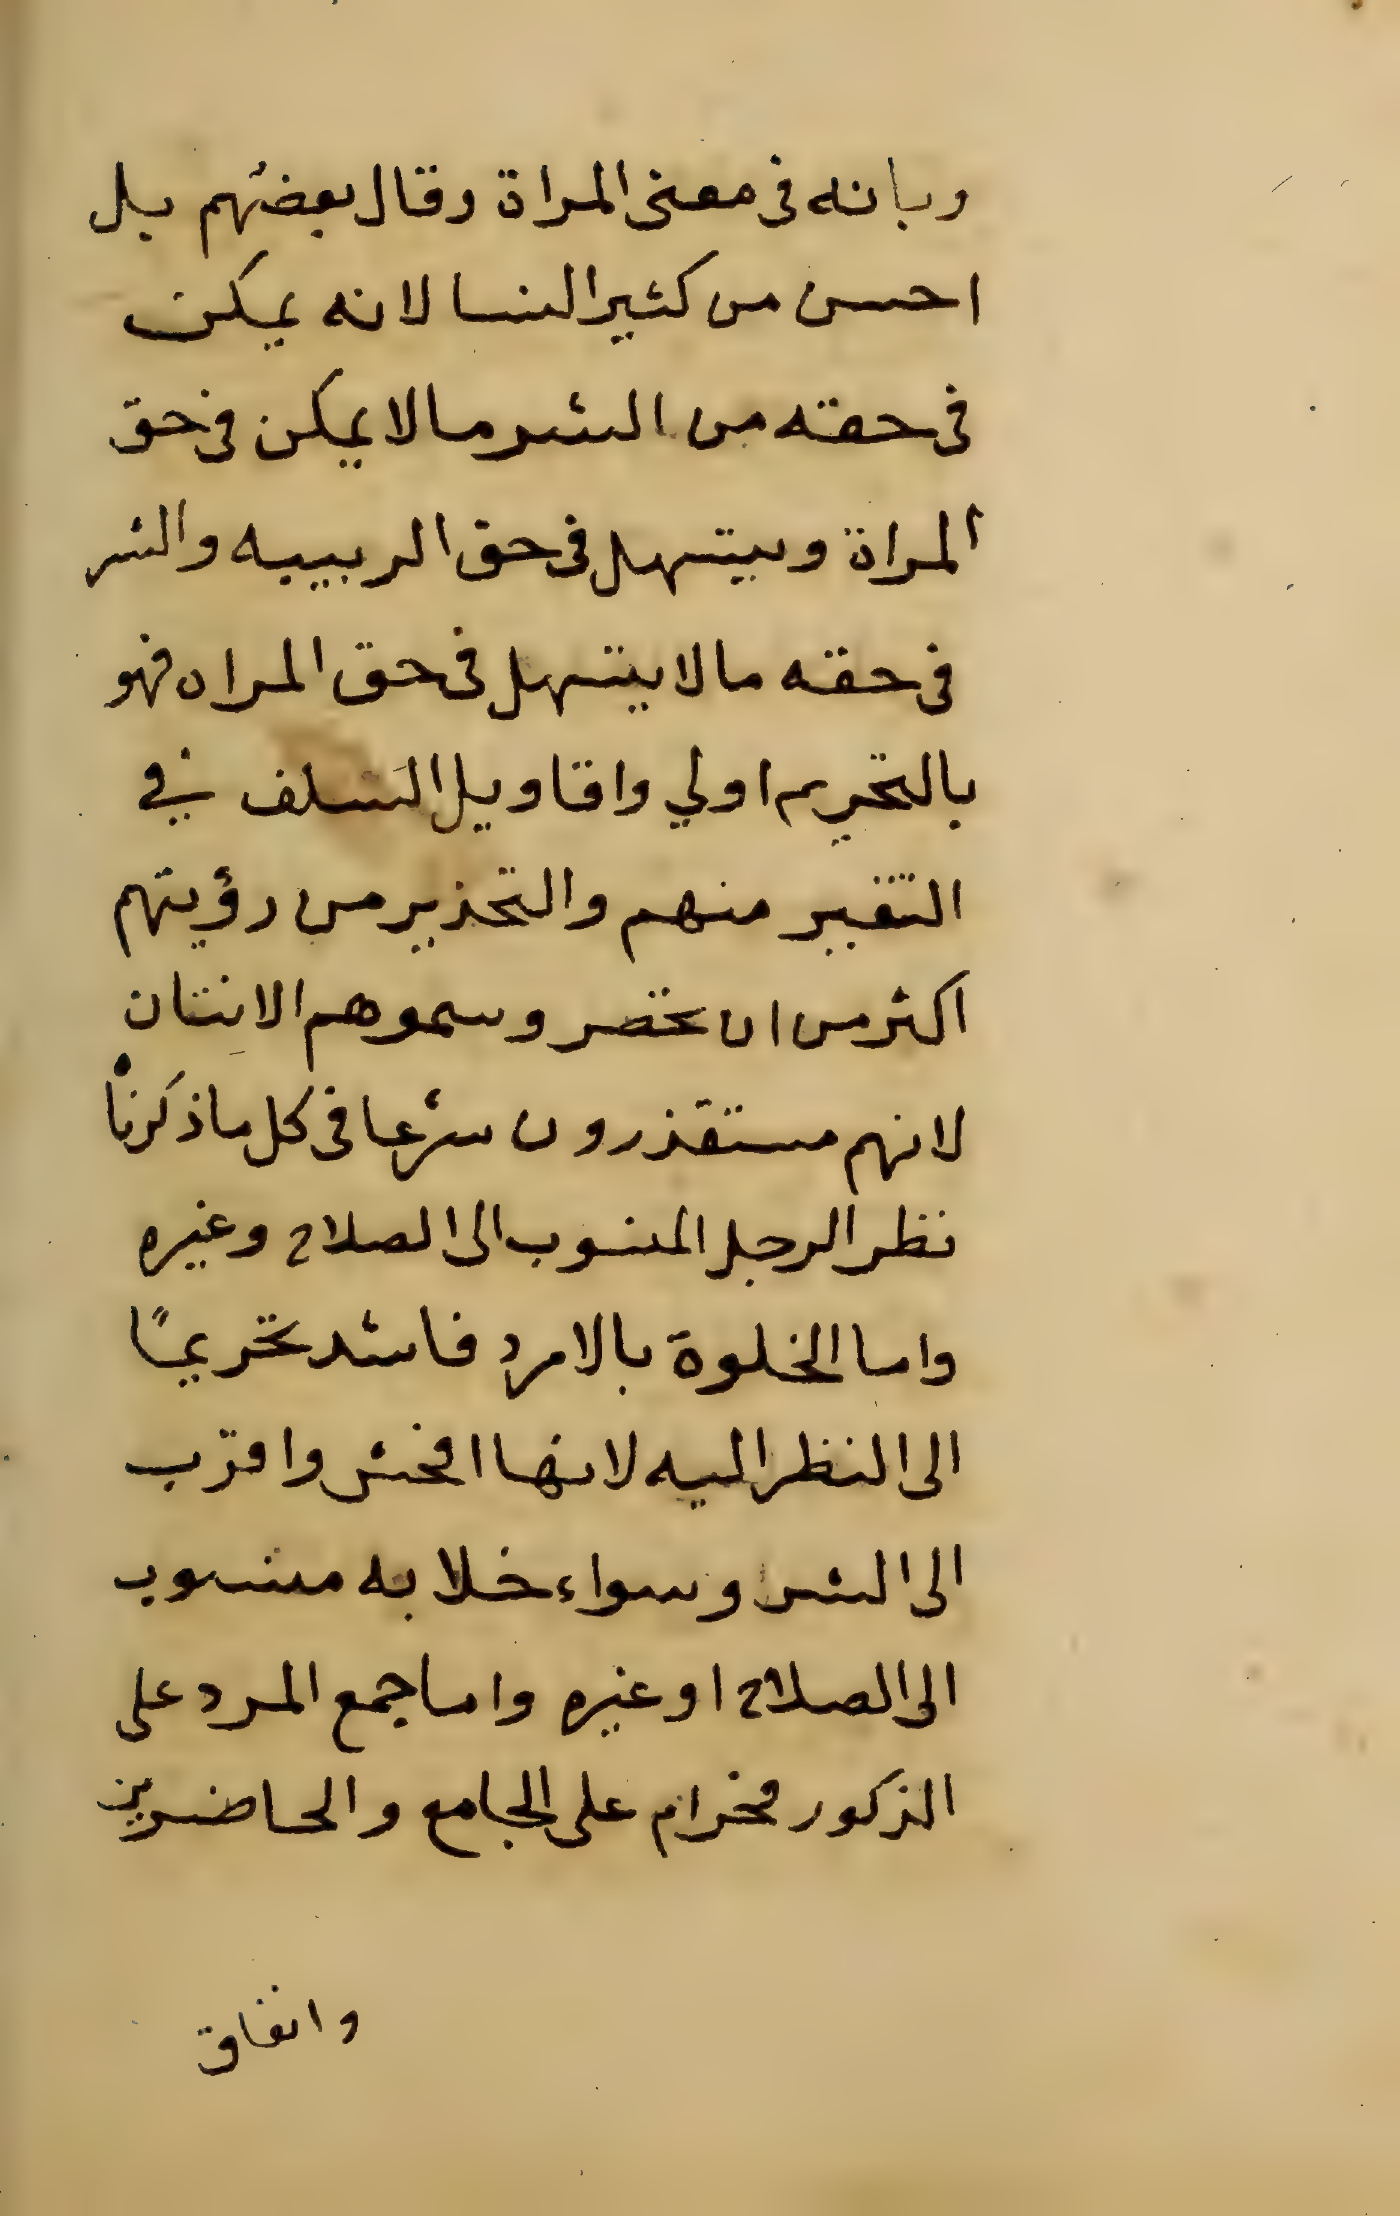 وبانه في معنى المراة وقال بعضهم بل
احسن من كثير النسا لانه يمكن
في حقه من الشر ما لا يمكن في حق
المراة ويتسهل في حق الريبيه والشر
في حقه ما لا يتسهل في حق المراه فهو
بالتحريم اولي واقاويل السلف في
التنفير منهم والتحذير من رؤيتهم
اكثر من ان تحصر وسموهم الانتان
لانهم مستقذرون شرعا في كل ما ذكرنا
نظر الرجل المنسوب الى الصلاح وغيره
واما الخلوة بالامرد فاشد تحريمًا
الى النظر اليه لانها افحش واقرب
الى الشر وسواء خلا به منسوب
الى الصلاح او غيره واما جمع المرد على
الذكور فحرام على الجامع والحاضرين
وانفاق